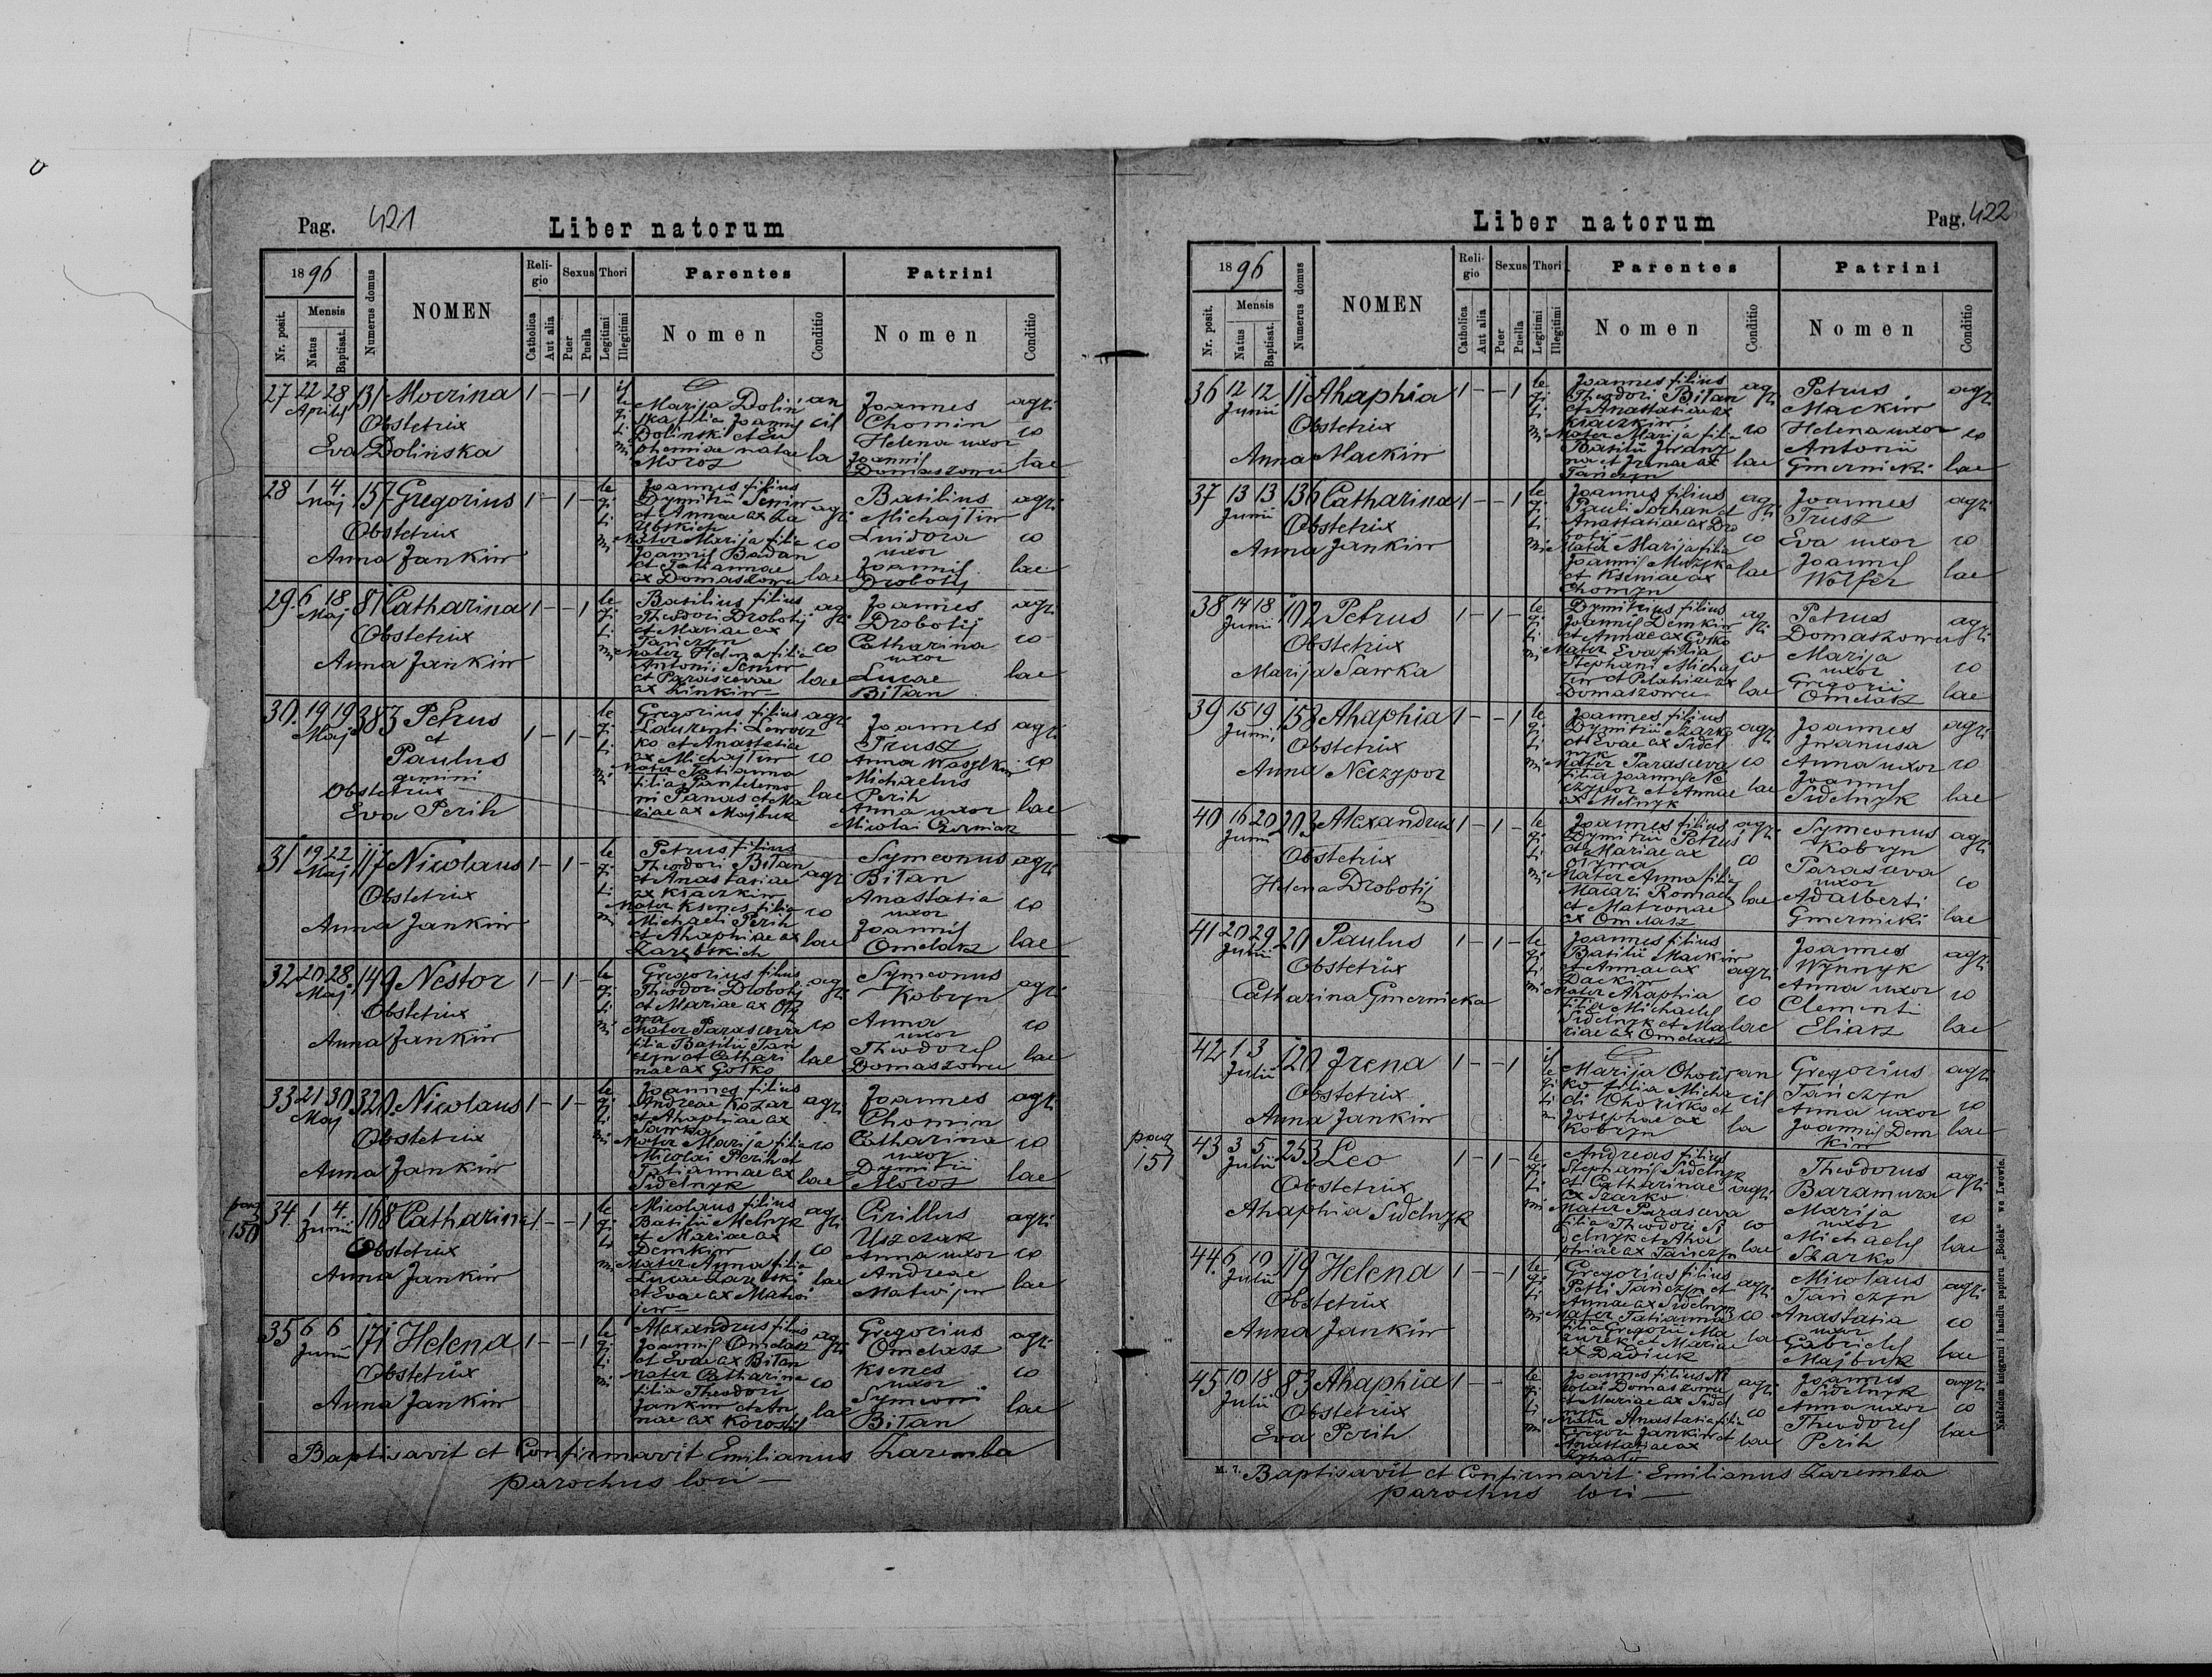 Pag. 421
Liber natorum
1896
Mensis
Nr. posit.
Natus
Baptisat.
Numerus domus
NOMEN
Religio
Catholica
Aut alia
Sexus
Puer
Puella
Thori
Legitimi
Illegitimi
Parentes
Nomen
Conditio
Patrini
Nomen
Conditio
27 22 28 131 Mocrina 1 – – 1
Aprilis
Obstetrix
Eva Dolinska
Marija Dolin
ska filia Joannis
Dolinski et Eu
phemiae natae
Moroz
Joannes
Chomin
Helena uxor
Joannis
Domaszowu
agri
co
lae
28 1 4 157 Gregorius 1 – 1 –
Maj
Obstetrix
Anna Jankiw
Joannes filius
Dymitrii Seniw
et Annae ex Za
rebskich
Mater Marija filia
Joannis Badan
et Tatiannae
ex Domaszowu
agri
co
lae
Basilius
Michajliw
Euidora
uxor
Joannis
Drobotij
agri
co
lae
29. 6 18 81 Catharina 1 – – 1
Maj
Obstetrix
Anna Jankiw
Basilius filius
Theodori Drobotij
et Mariae ex
Tanczyn
Mater Helena filia
Antonii Seniw
et Parascevae
ex Zinkiw
agri
co
lae
Joannes
Drobotij
Catharina
uxor
Lucae
Bilan
agri
co
lae
30. 19 19 383 Petrus
Maj et
Paulus
gemini
1 – 1 –
Obstetrix
Eva Perih
Gregorius filius
Laurenti Lewoc
ko et Anastasiae
ex Michajliw
Mater Tatianna
filia Pantelemo
ni Panas et Ma
riae ex Majbuk
agri
co
lae
Joannes
Trusz
Anna Wasylkiw
Michaelus
Perih
Anna uxor
Nicolai Czerniak
agri
co
lae
31 19 22 117 Nicolaus 1 – 1 –
Maj
Obstetrix
Anna Jankiw
Petrus filius
Theodori Bilan
et Anastasiae
ex Kraczkiw
Mater Ksenes filia
Michaeli Perih
et Ahaphiae ex
Zarebskich
agri
co
lae
Symeonus
Bilan
Anastasia
uxor
Joannis
Omelasz
agri
co
lae
32 20 28 149 Nestor 1 – 1 –
Maj
Obstetrix
Anna Jankiw
Gregorius filius
Theodori Drobotij
et Mariae ex
Mater Parasceva
filia Basilii Tan
czyn et Cathari
nae ex Golko
agri
co
lae
Symeonus
Kobryn
Anna
uxor
Theodoris
Domaszowu
agri
co
lae
33 21 30 320 Nicolaus 1 – 1 –
Maj
Obstetrix
Anna Jankiw
Joannes filius
Andreae Kozar
et Ahaphiae ex
Sawka
Mater Marija filia
Nicolai Perih et
Tatiannae ex
Sidelnyk
agri
co
lae
Joannes
Chomin
Catharina
uxor
Dymitrii
Moroz
agri
co
lae
pag
150
34. 1 4. 168 Catharina 1 – – 1
Junii
Obstetrix
Anna Jankiw
Nicolaus filius
Basilii Melnyk
et Mariae ex
Demkiw
Mater Anna filia
Lucae Zarebski
et Evae ex Matwi
jew
agri
co
lae
Cirillus
Uszczak
Anna uxor
Andreae
Matwijew
agri
co
lae
35 6 6 171 Helena 1 – – 1
Junii
Obstetrix
Anna Jankiw
Alexandrus filius
Joannis Omelasz
et Evae ex Bilan
Mater Catharina
filia Theodori
Jankiw et An
nae ex Korostil
agri
co
lae
Gregorius
Omelasz
Ksenes
uxor
Symeoni
Bilan
agri
co
lae
Baptisavit et Confirmavit Emilianus Zaremba
parochus loci
Liber natorum
Pag. 422
1896
Mensis
Nr. posit.
Natus
Baptisat.
Numerus domus
NOMEN
Religio
Catholica
Aut alia
Sexus
Puer
Puella
Thori
Legitimi
Illegitimi
Parentes
Nomen
Conditio
Patrini
Nomen
Conditio
36 12 12 11 Ahaphia 1 – – 1
Junii
Obstetrix
Anna Mackiw
Joannes filius
Theodori Bilan
et Anastasiae ex
Kraczkiw
Mater Marija filia
Basilii Iwany
na et Irenae ex
Tanczyn
agri
co
lae
Petrus
Mackiw
Helena uxor
Antonii
Gmernicki
agri
co
lae
37 13 13 136 Catharina 1 – – 1
Junii
Obstetrix
Anna Jankiw
Joannes filius
Pauli Sochan et
Anastasiae ex Dro
botij
Mater Marija filia
Joannis Muzyka
et Kseniae ex
Chomyn
agri
co
lae
Joannes
Trusz
Eva uxor
Joannis
Wolfer
agri
co
lae
38 14 18 102 Petrus 1 – 1 –
Junii
Obstetrix
Marija Sawka
Dymitrius filius
Joannis Demkiw
et Annae ex Golko
Mater Eva filia
Stephani Michaj
liw et Pelahiae ex
Domaszowu
agri
co
lae
Petrus
Domaszowu
Marija
uxor
Gregorii
Omelasz
agri
co
lae
39 15 19 158 Ahaphia 1 – – 1
Junii
Obstetrix
Anna Neczypor
Joannes filius
Dymitrii Szarko
et Evae ex Sidel
nyk
Mater Parasceva
filia Joannis Ne
czypor et Annae
ex Melnyk
agri
co
lae
Joannes
Iwanusa
Anna uxor
Joannis
Sidelnyk
agri
co
lae
40 16 20 203 Alexandrus 1 – 1 –
Junii
Obstetrix
Helena Drobotij
Joannes filius
Dymitrii Petrus
et Mariae ex
Mater Anna filia
Macari Romach
et Matronae
ex Omelasz
agri
co
lae
Symeonus
Kobryn
Parasceva
uxor
Adalberti
Gmernicki
agri
co
lae
41 20 29 20 Paulus 1 – 1 –
Junii
Obstetrix
Catharina Gmernicka
Joannes filius
Basilii Mackiw
et Annae ex
Dackiw
Mater Ahaphia
filia Michaelis
Sidelnyk et Ma
riae ex Omelasz
agri
co
lae
Joannes
Wynnyk
Anna uxor
Clementi
Eliasz
agri
co
lae
42 1 3 120 Irena 1 – – 1
Julii
Obstetrix
Anna Jankiw
Marija Ohoris
ko filia Micha
eli Ohorisko et
Josephae ex
Kobryn
Gregorius
Tanczyn
Anna uxor
Joannis Dem
kiw
agri
co
lae
pag
151
43 3 5 253 Leo 1 – 1 –
Julii
Obstetrix
Ahaphia Sidelnyk
Andreas filius
Stephanis Sidelnyk
et Catharinae
ex Szarko
Mater Parasceva
filia Theodori Si
delnyk et Aha
phiae ex Tanczyn
agri
co
lae
Theodorus
Baramura
Marija
uxor
Michaelis
Szarko
agri
co
lae
44. 6 10 119 Helena 1 – – 1
Julii
Obstetrix
Anna Jankiw
Gregorius filius
Petri Tanczyn et
Annae ex Sidelnyk
Mater Tatianna
filia Gregorii Ma
zurek et Mariae
ex Dadiuk
agri
co
lae
Nicolaus
Tanczyn
Anastasia
uxor
Gabrielis
Majbuk
agri
co
lae
45 10 18 83 Ahaphia 1 – –
Julii
Obstetrix
Eva Perih
Joannes filius Ni
colai Domaszowu
et Mariae ex Sidel
nyk
Mater Anastasia filia
Gregori Jankiw et
Anastasiae ex
agri
co
lae
Joannes
Sidelnyk
Anna uxor
Theodoris
Perih
agri
co
lae
M. 7.
Baptisavit et Confirmavit: Emilianus Zaremba
parochus loci
Nakładem księgarni i handlu papieru „Bodek“ we Lwowie.